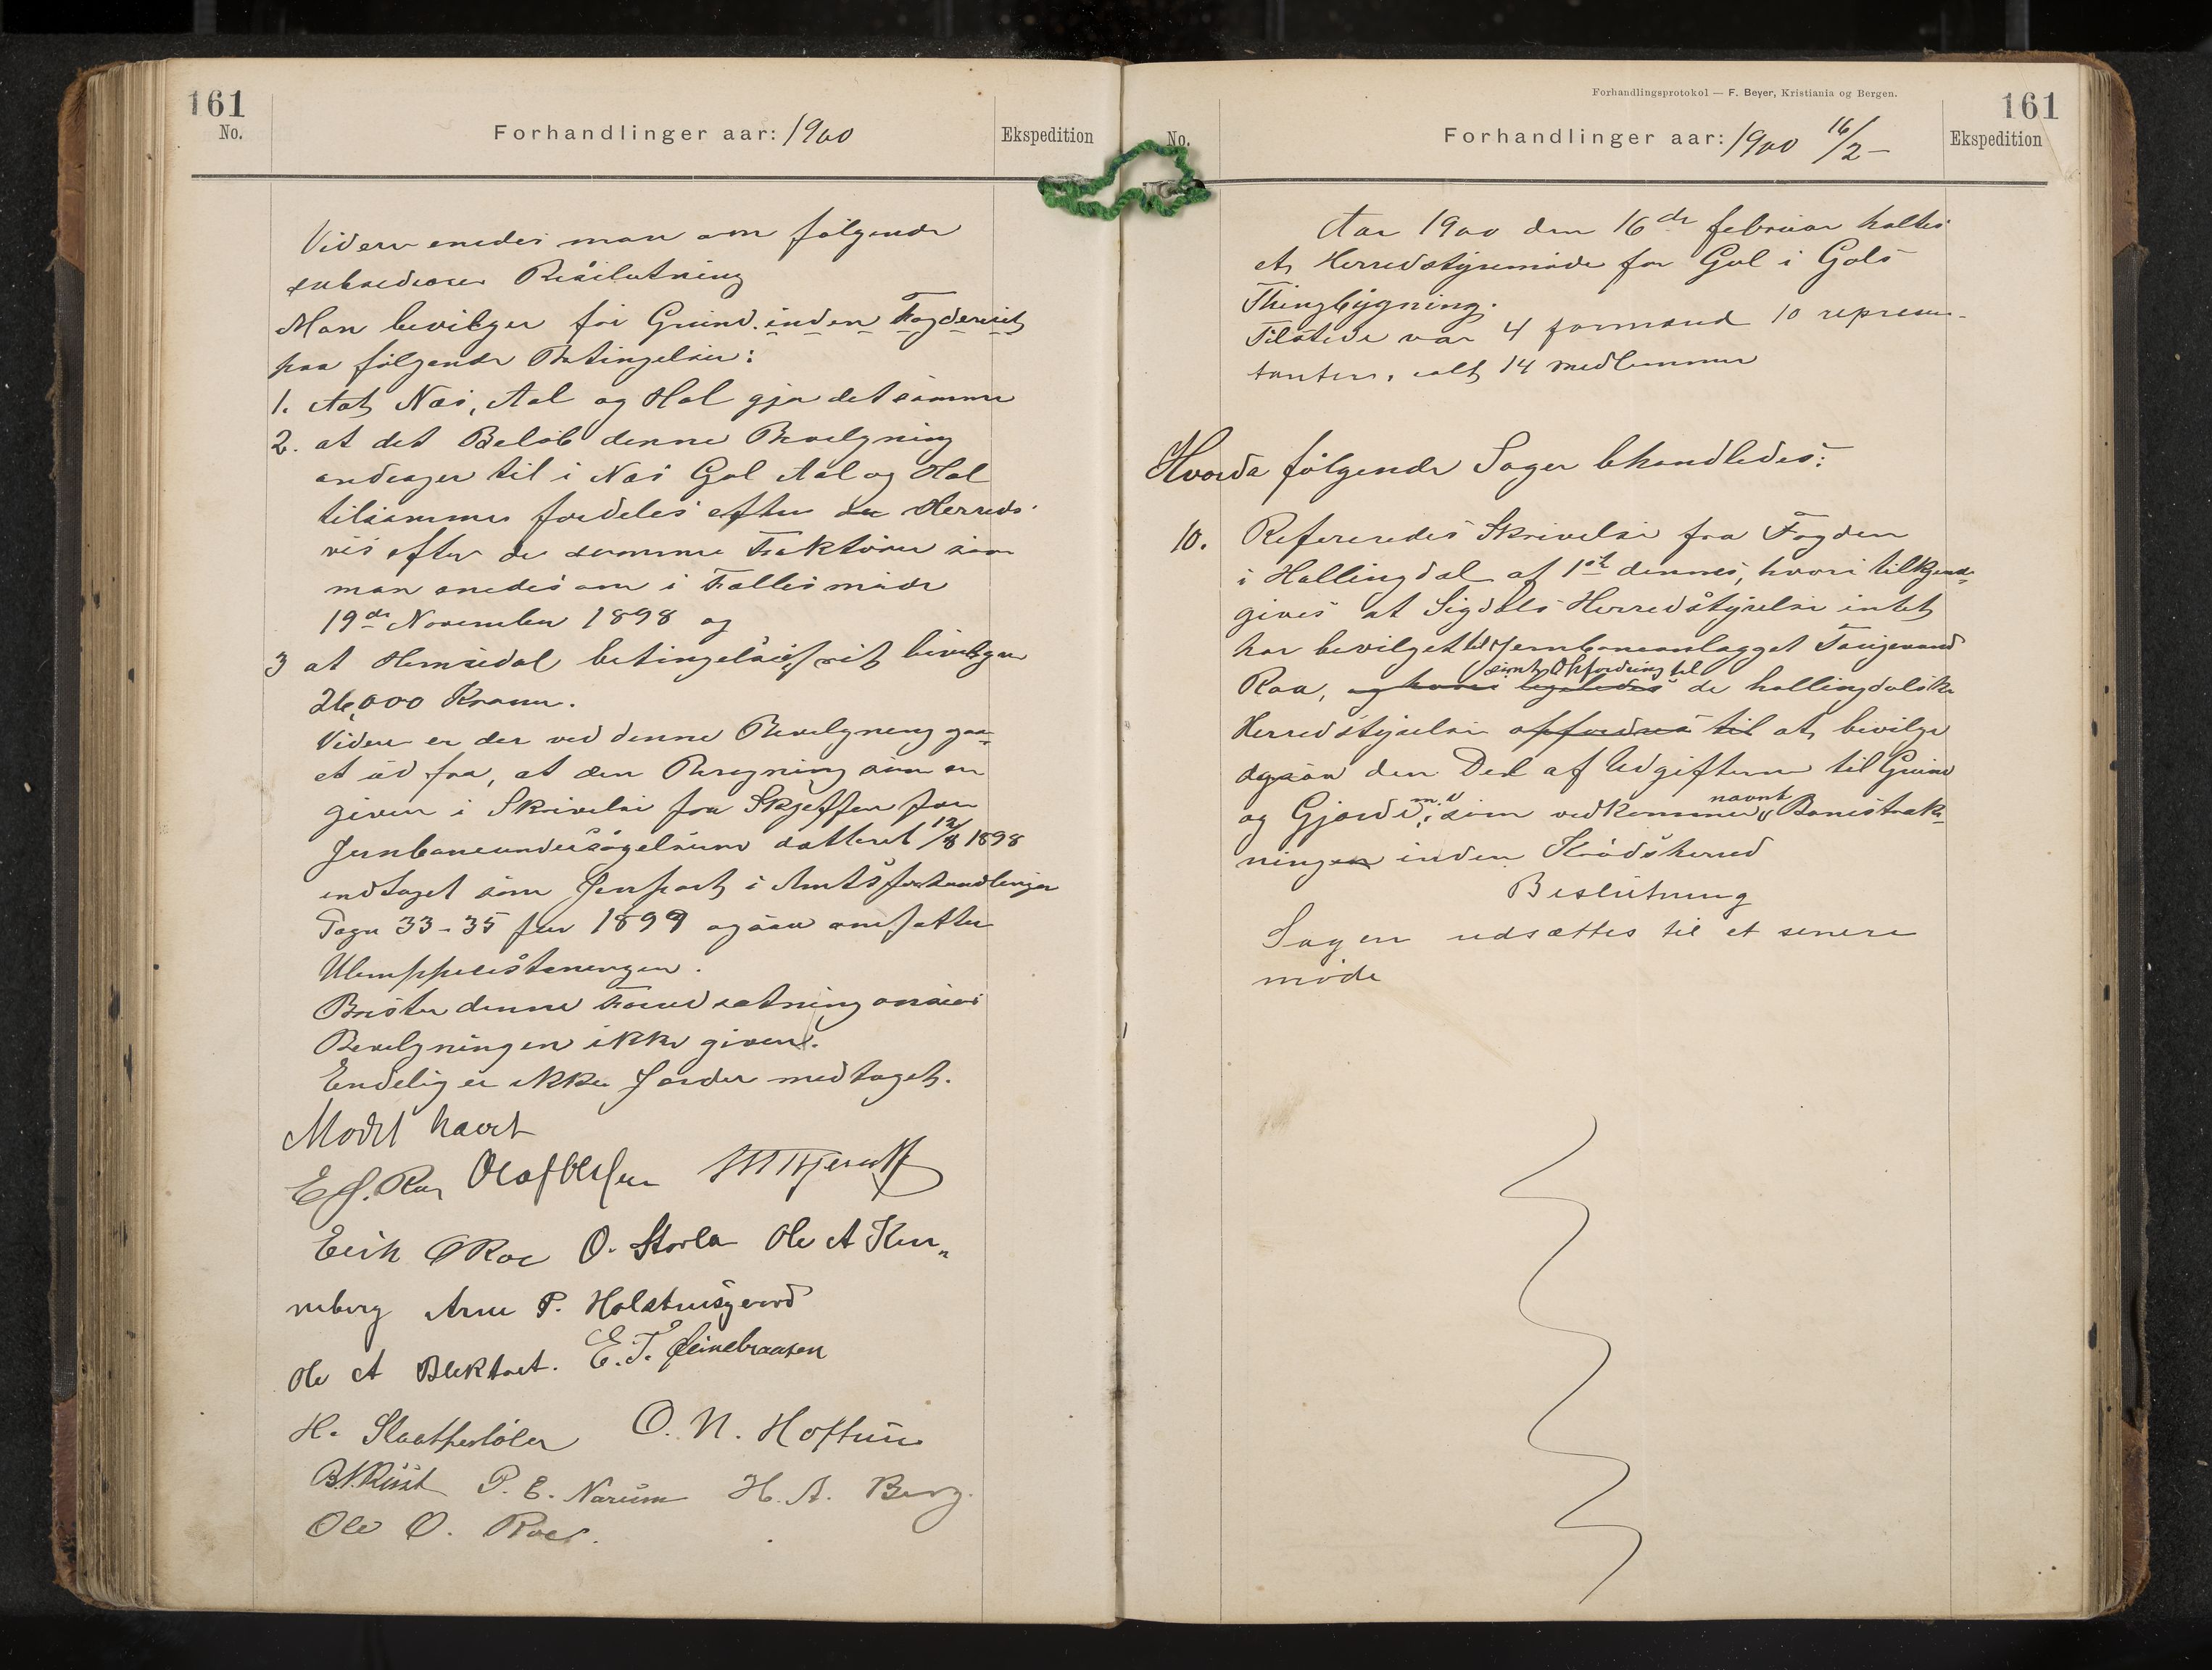 161
No.
Forhandlinger aar: 1900
Ekspedition
Videre enedes man om følgende
Beslutning
Man bevilger for Grund inden Fogderiet
paa følgende Betingelser:
1. At Næs, Aal og Hol gjør det samme
2. at det Beløb denne Bevilgning
andrager til i Næs Gol Aal og Hol
tilsammen fordeles efter Herreds
vis efter de samme Faktorer som
man enedes om i Fællesmøde
19de November 1898 og
3 at Hemsedal betingelsesfrit bevilger
26,000 Kroner.
Videre er der ved denne Bevilgning gaa-
et ud fra, at den Beregning som er
given i Skrivelse fra Skjeffen for
Jernbaneundersøgelserne datteret 12/8 1898
indtaget som i Amtsforhandlinger
Pagn 33-35 for 1899 ogsaa omfatter
Brister denne Forudsætning ansees
Bevilgningen ikke given.
Endelig er ikke Gjorder medtaget.
Mødet hævet
E. J. Roe Olaf Olsen
Erik O Roe O. Storla Ole A Ken„
neberg Arne P. Halstensgaard
Ole A Blektvet. E. T. Heinebraaten
H. Slaatperløler O. N. Hoftun
B.N.Rust P. E. Narum H. A. Berg.
Ole O. Roe.
Forhandlingsprotokol — F. Beyer, Kristiania og Bergen.
161
No.
Forhandlinger aar: 1900 16/2 –
Ekspedition
Aar 1900 den 16de februar holtes
et Herredstyremøde for Gol i Gols
Thingbygning.
Tilstede var 4 formænd 10 represen-
tanter, ialt 14 medlemmer
Hvorda følgende Sager behandledes:
10. Refereredes Skrivelse fra Fogden
i Hallingdal af 1st dennes, hvori tilkjende-
gives at Sigdals Herredstyrelse intet
har bevilget til Jernbaneanlægget
samt Opfordring til
Roa, og hvori ligeledes de hallingdalske
Herredstyrelser opfordres til at bevilge
ogsaa den Del af Udgifterne til Grund
og Gjærde m.v. som vedkommer nævnt Banestræk-
ningen inden Krødsherred
Beslutning
Sagen udsættes til et senere
møde